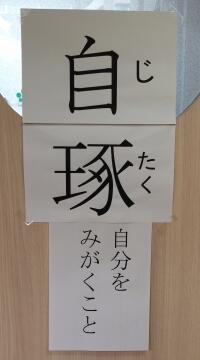 自琢
じたく
自分を
みがくこと